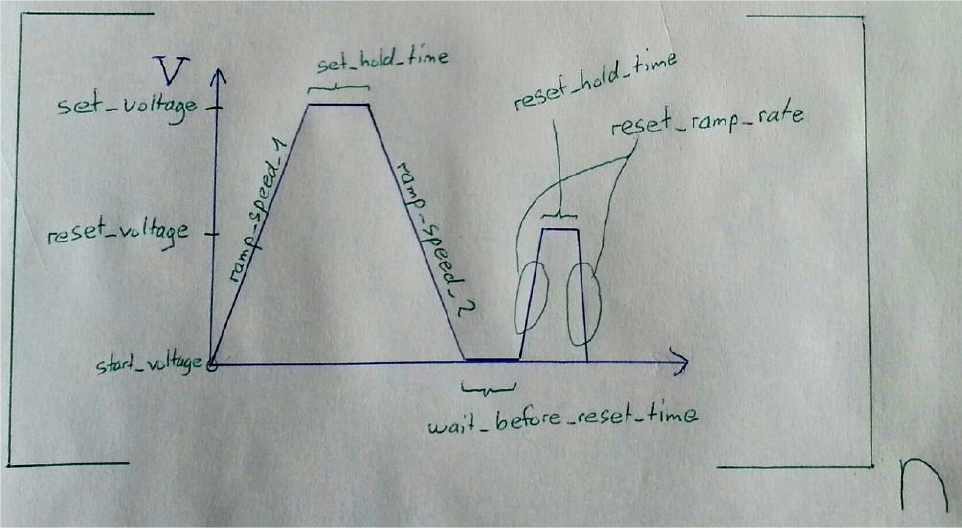 V
set_hold_time
set_voltage
reset_hold_time
reset_ramp_rate
ramp_speed_1
ramp_speed_2
reset_voltage
start_voltage
wait_before_reset_time
n